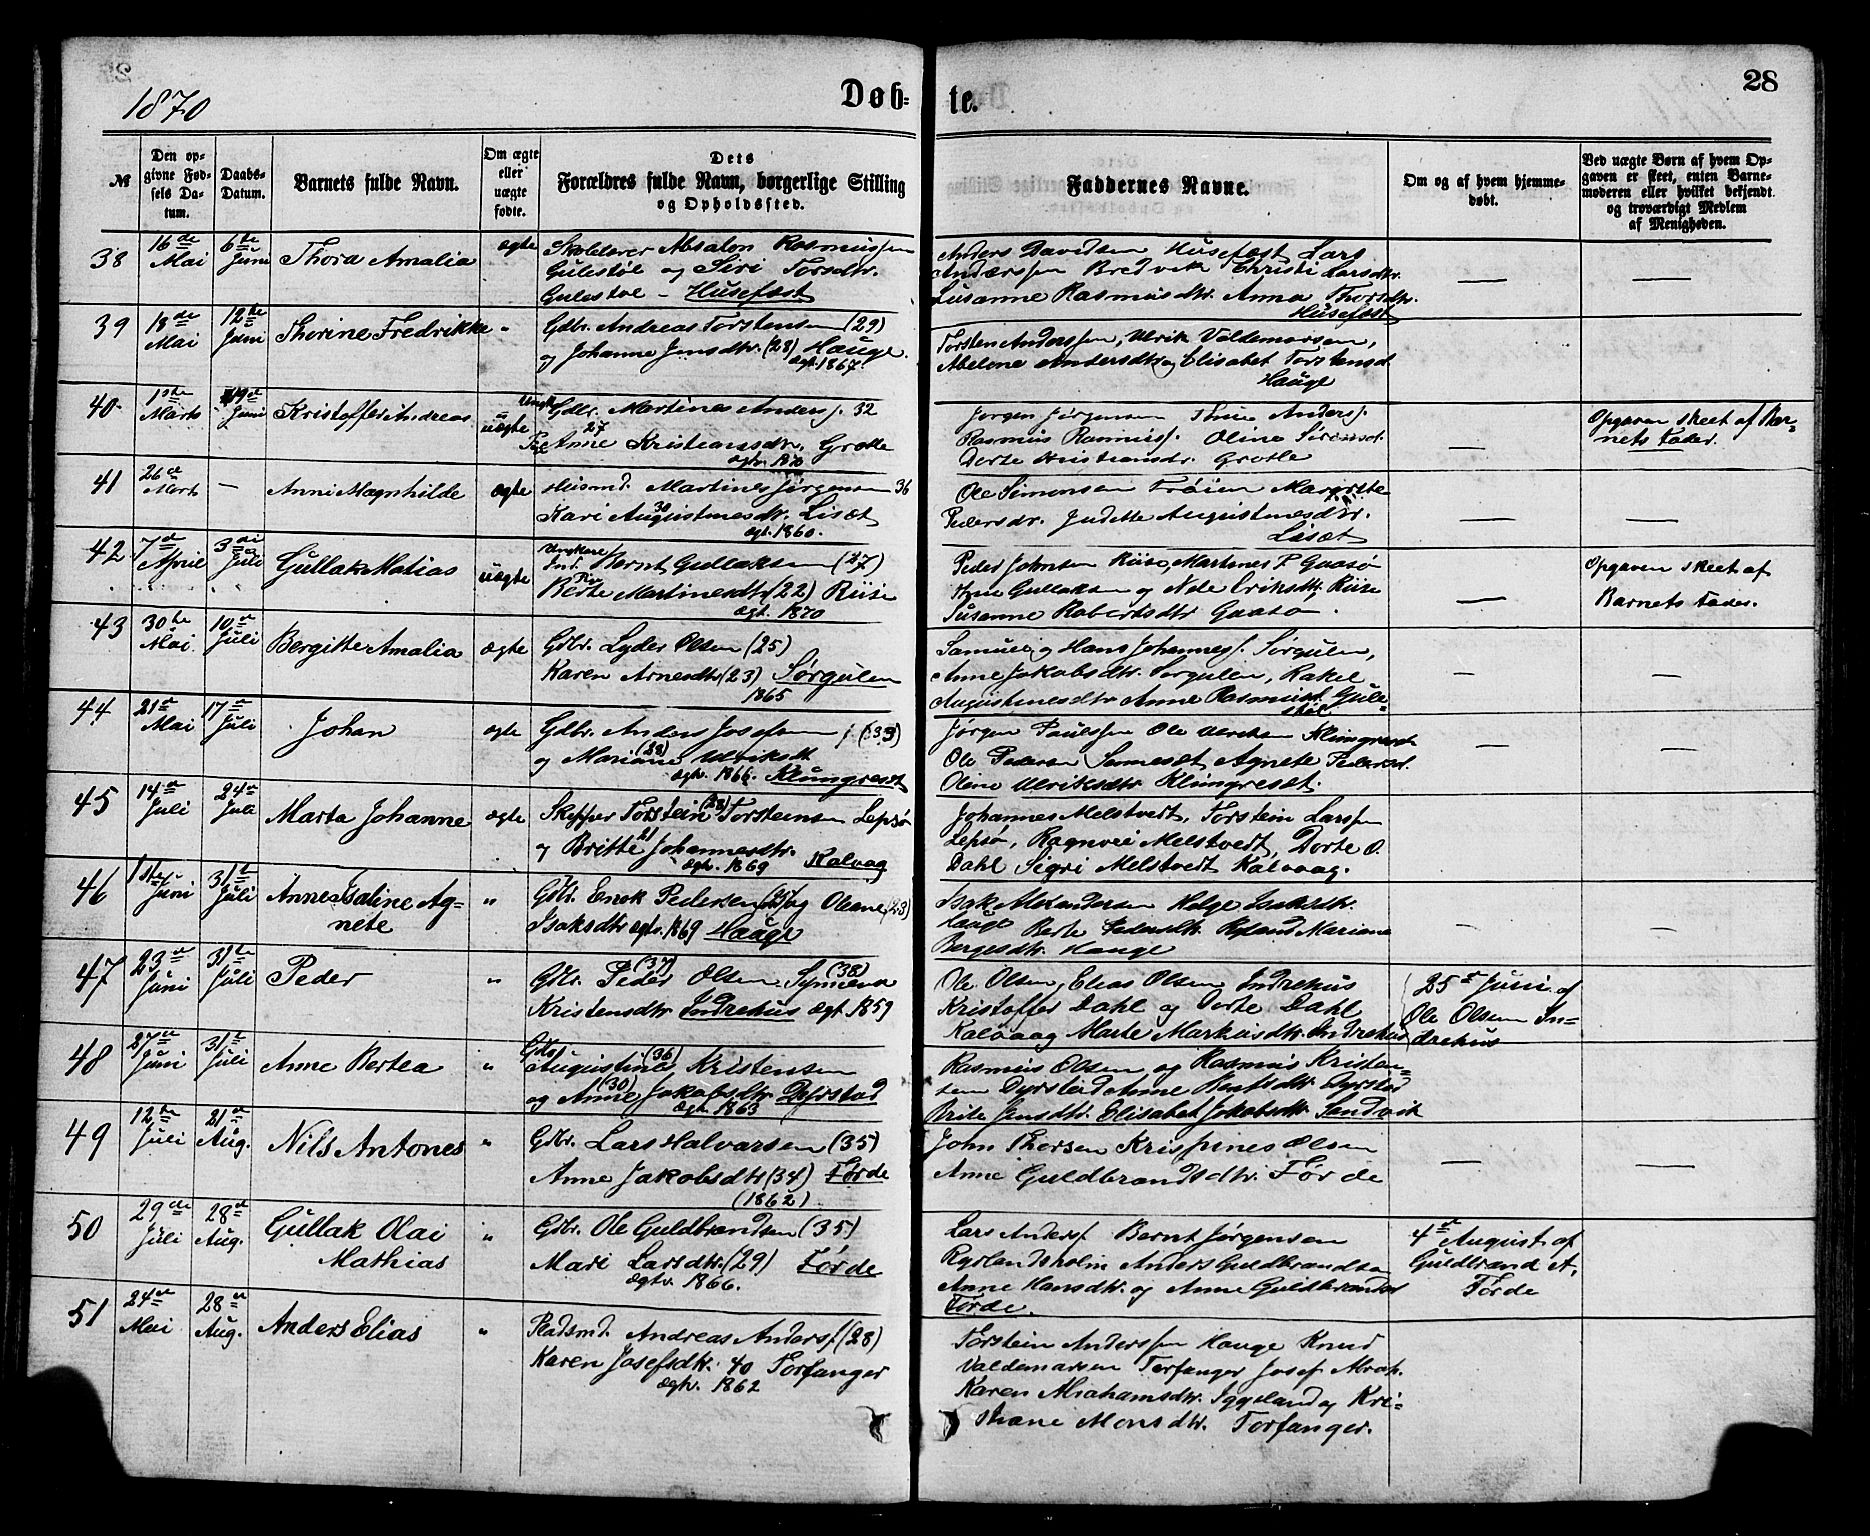 1870
Døb-
te.
28
№
Den opgivne Fødsels Datum.
Daabs-Datum.
Barnets fulde Navn.
Om ægte eller uægte fødte.
Dets Forældres fulde Navn, borgerlige Stilling og Opholdssted.
Faddernes Navne.
Om og af hvem hjemmedøbt.
Ved uægte Børn af hvem Opgaven er skeet, enten Barnemoderen eller hvilket bekjendt og troværdigt Medlem af Menigheden.
38 16de Mai 6te Juni Thora Amalia ægte
Skolelærer Absalon Rasmussen
Gulestøl og Siri Torsdtr.
Gulestøl - Husefæst
Anders Davidsen Husefæst Lars
Anderssen Bredvik Christi Larsdtr.
Susanne Rasmusdtr. Anna Thorsdtr.
Husefæst
39 18de Mai 12te Juni Thorine Fredrikke "
Gdbr. Andreas Torstensen (29)
og Johanne Jensdtr. (28) Hauge.
ægt. 1867.
Torsten Anderssen, Ulrik Valdemarsen,
Abelone Andersdtr. og Elisabet Torstensd.
Hauge
40. 1ste Marts 19de Juni Kristoffer Andreas uægte
Ungk. Gdbr. Martines Anders. 32
Pige Anne 27 Kristiansdtr. Grotle
ægtv. 1870
Jørgen Jørgensen Thue Anders.
Rasmus Rasmuss. Oline Sørensd.
Dorte Kristiansdr. Grotle
Opgaven skeet af Bar-
nets Fader.
41 26de Marts — Anne Magnhilde ægte
Husmd. Martines Jørgensen 36
Kari 30 Augustinesdtr. Liset
ægt. 1860.
Ole Simonsen Frøien Margrete
Pedersdr. Judette Augustinesdtr.
Liset
42 7de April 3die Juli Gullak Matias uægte
Ungkarl Ind. Bernt Gullaksen (27)
Pige Berte Martinesdtr (22) Riise
ægt. 1870
Peder Johnsen Riise, Martines P. Gaasø
Gullaksen og Nele Eriksdtr. Riise
Susanne Robertsdtr Gaasø.
Opgaven skeet af
Barnets Fader.
43 30te Mai 10de Juli Bergitte Amalia ægte
Gdbr. Lyder Olsen (25)
Karen Arnesdtr. (23) Sørgulen
1865
Samuel og Hans Johannes. Sørgulen,
Anne Jakobsdtr. Sørgulen, Rakel
Augustinesdtr Anne Rasmusd. Gule-
støl
44 21de Mai 17de Juli Johan ægte
Gdbr. Anders Josefsen (33)
og Mariane (28) Ulriksdt.
ægtv. 1866. Klungreset
Jørgen Paulssen Ole Ulriksen Klungreset
Ole Pedersen Sammeset Agnete Pedersd.
Oline Ulriksdtr. Klungreset.
45 14de Juli 24de Juli Marta Johanne ægte
Skipper Torstein (28) Torsteinsen Lepsø
og Britte 21 Johannesdtr.
ægtv. 1869 Kalvaag
Johannes Melstvedt, Torstein Larssen
Lepsø, Ragnvei Melstvedt, Dorte O.
Dahl Sigri Melstvedt Kalvaag.
46 1ste Juni 31te Juli Anne Esaline Ag-
nete "
Gdbr. Enok Pedersen og Oleane (23)
Isaksdtr ægtv. 1869 Hauge
Isak Alexandersen Helge Isaksdtr.
Hauge Berte Pedersdtr. Rylands Mariane
Børgesdtr. Hauge
47 23de Juni 31te Juli Peder "
Gdbr. Peder (37) Olsen Symena (38)
Kristensdtr Indrehus ægt. 1859
Ole Olsen, Elias Olsen Indrehus
Kristoffer Dahl og Dorte Dahl
Kalvaag Marte Markusdtr. Indrehus
25de Juni af
Ole Olsen In-
drehus
48 27de Juni 31te Juli Anne Bertea "
Gdbr. Augustinus (36) Kristensen
og Anne (30) Jakobsdtr. Dyrstad
ægt. 1863
Rasmus Olsen og Rasmus Kristen-
sen Dyrstad Anne Dyrstad
Brite Jensdtr. Elisabet Jakobsdtr Sandvik
49 12te Juli 21de Aug. Nils Antones "
Gdbr. Lars Halvarsen (35)
Anne Jakobsdtr (34) Førde
(1862)
John Thorsen Krispines Olsen
Anne Guldbrandsdtr. Førde
50 29de Juli 28de Aug. Gullak Olai
Mathias "
Gdbr. Ole Guldbrandsen (35)
Mari Larsdtr. (29) Førde
ægtv. 1866.
Lars Anders. Bernt Jørgensen
Rylandsholm Anders Guldbrandsen
Anne Hansdtr. og Anne Guldbrandsd
Førde.
4de August af
Guldbrand A.
Førde
51 24de Mai 28de Aug. Anders Elias "
Pladsmd. Andreas Anders. (28)
Karen Josefsdtr. 40 Torfanger
ægtv. 1862
Torstein Anderssen Hauge Knud
Valdemarsen Torfanger Josef Abrah.
Karen Abrahamsdtr. Iggeland og Kri-
stiane Monsdtr. Torfanger.